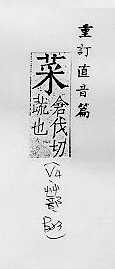 重訂直音篇
菜
倉伐切
蔬也
(V4艸部